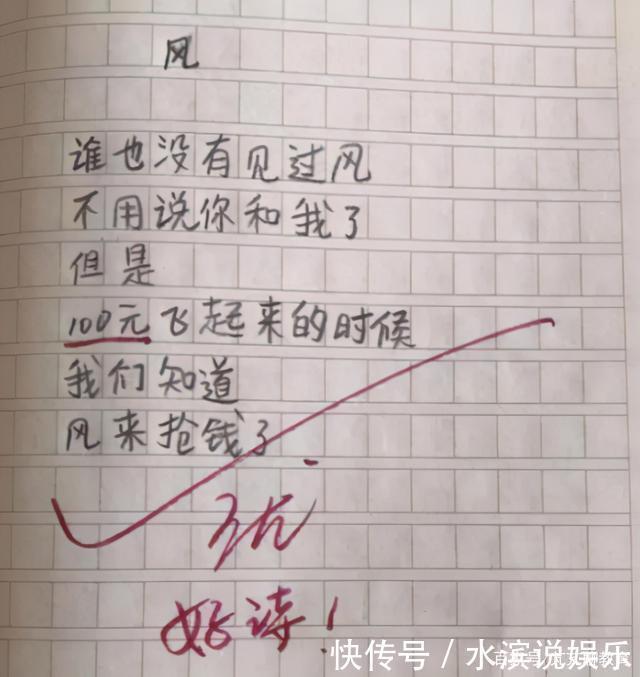 风
谁也没有见过风
不用说你和我了
但是
100元飞起来的时候
我们知道
风来抢钱了
优
好诗！
快传号／水滨说娱乐